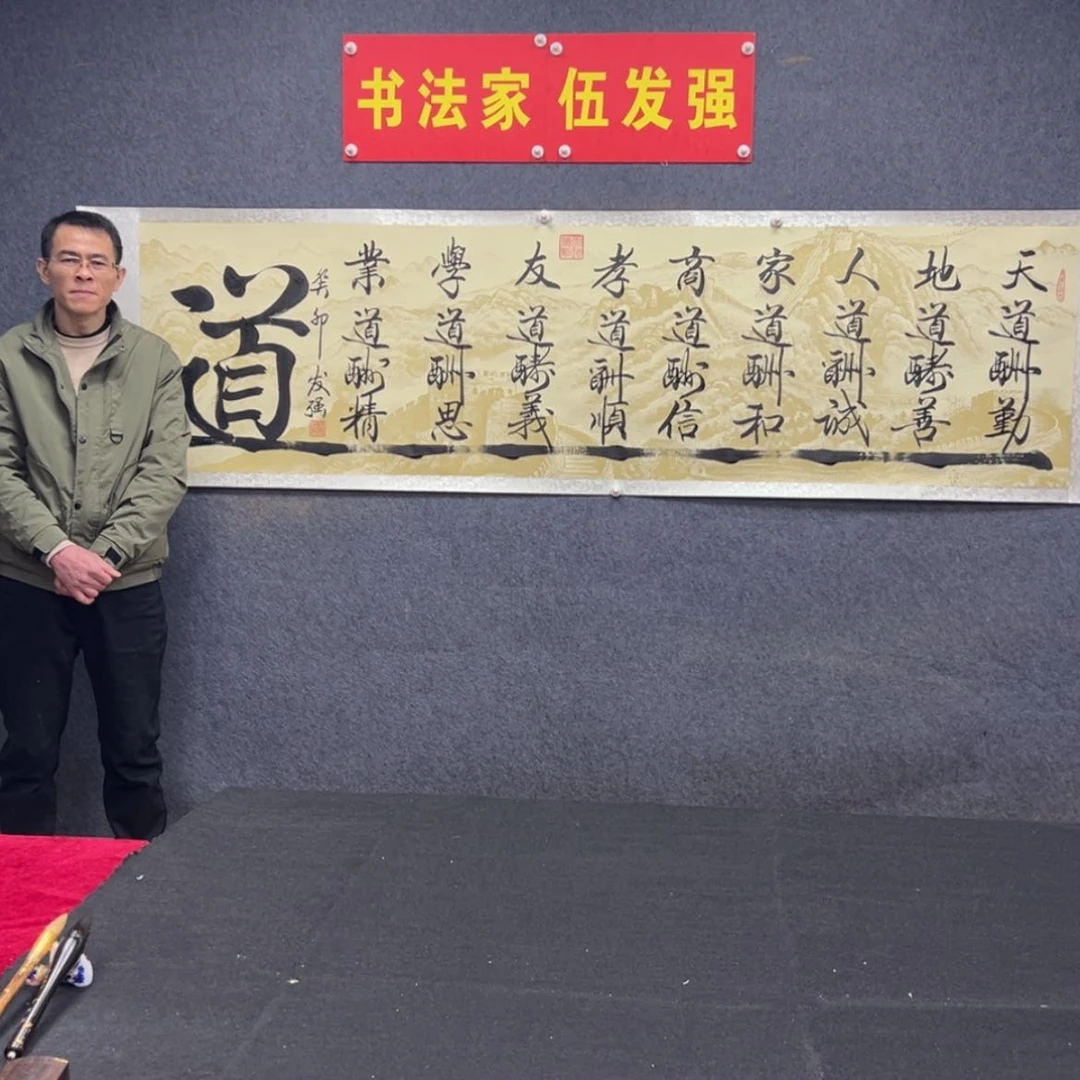 书法家 伍发强
天道酬勤
地道酬善
人道酬誠
家道酬和
商道酬信
孝道酬順
友道酬義
學道酬思
業道酬精
癸卯 发强
道